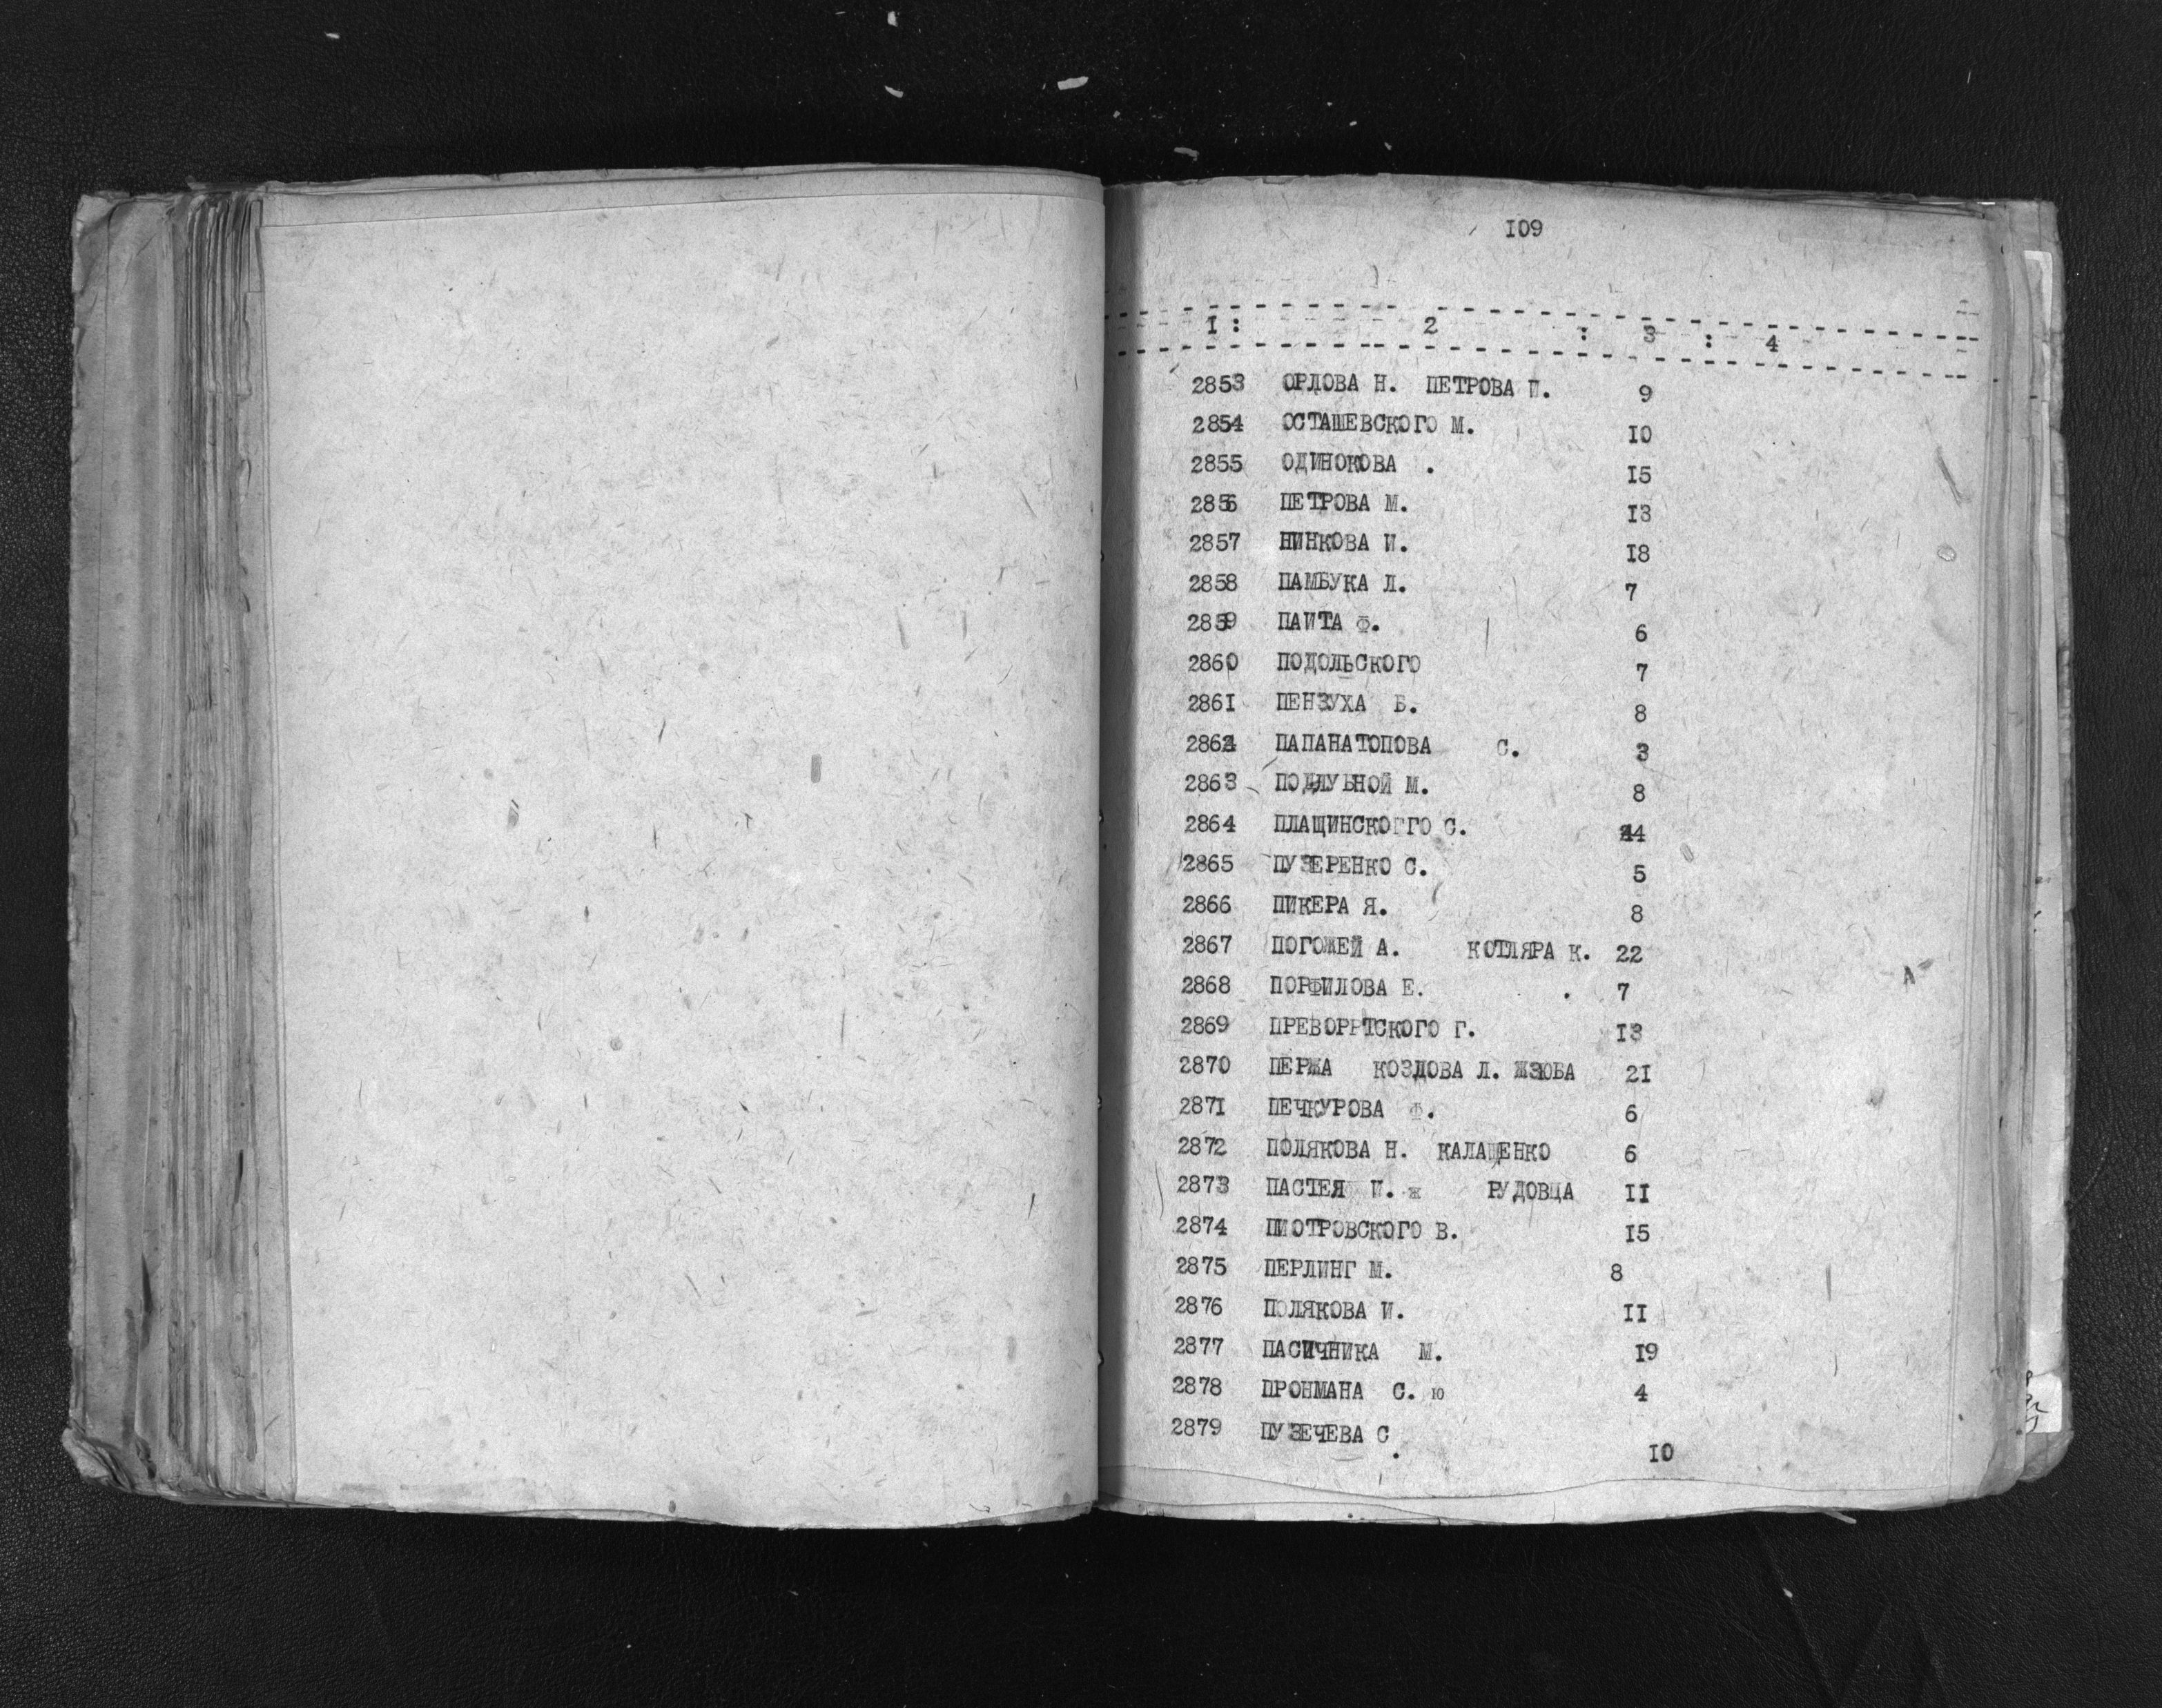 109
1 : 2 : 3 : 4
2853 ОРЛОВА Н. ПЕТРОВА И. 9
2854 ОСТАШЕВСКОГО М. 10
2855 ОДИНОКОВА . 15
2856 ПЕТРОВА М. 13
2857 НИНКОВА И. 18
2858 ПАМБУКА Л. 7
2859 ПАИТА Ф. 6
2860 ПОДОЛЬСКОГО 7
2861 ПЕНЗУХА Б. 8
2862 ПАПАНАТОПОВА С. 3
2863 М. 8
2864 ПЛАЩИНСКОГГО С.
2865 ПУЗЕРЕНКО С. 5
2866 ПИКЕРА Я. 8
2867 ПОГОЖЕЙ А. КОТЛЯРА К. 22
2868 ПОРФИЛОВА Е. . 7
2869 ПРЕВОРРТСКОГО Г. 13
2870 ПЕРЖА КОЗЛОВА Л. 21
2871 ПЕЧКУРОВА Ф. 6
2872 ПОЛЯКОВА Н. КАЛАЩЕНКО 6
2873 ПАСТЕЯ И. ж РУДОВЦА 11
2874 ПИОТРОВСКОГО В. 15
2875 ПЕРЛИНГ М. 8
2876 ПОЛЯКОВА И. 11
2877 ПАСИЧНИКА М. 19
2878 ПРОНМАНА С. ю 4
2879 ПУЗЕЧЕВА С. 10